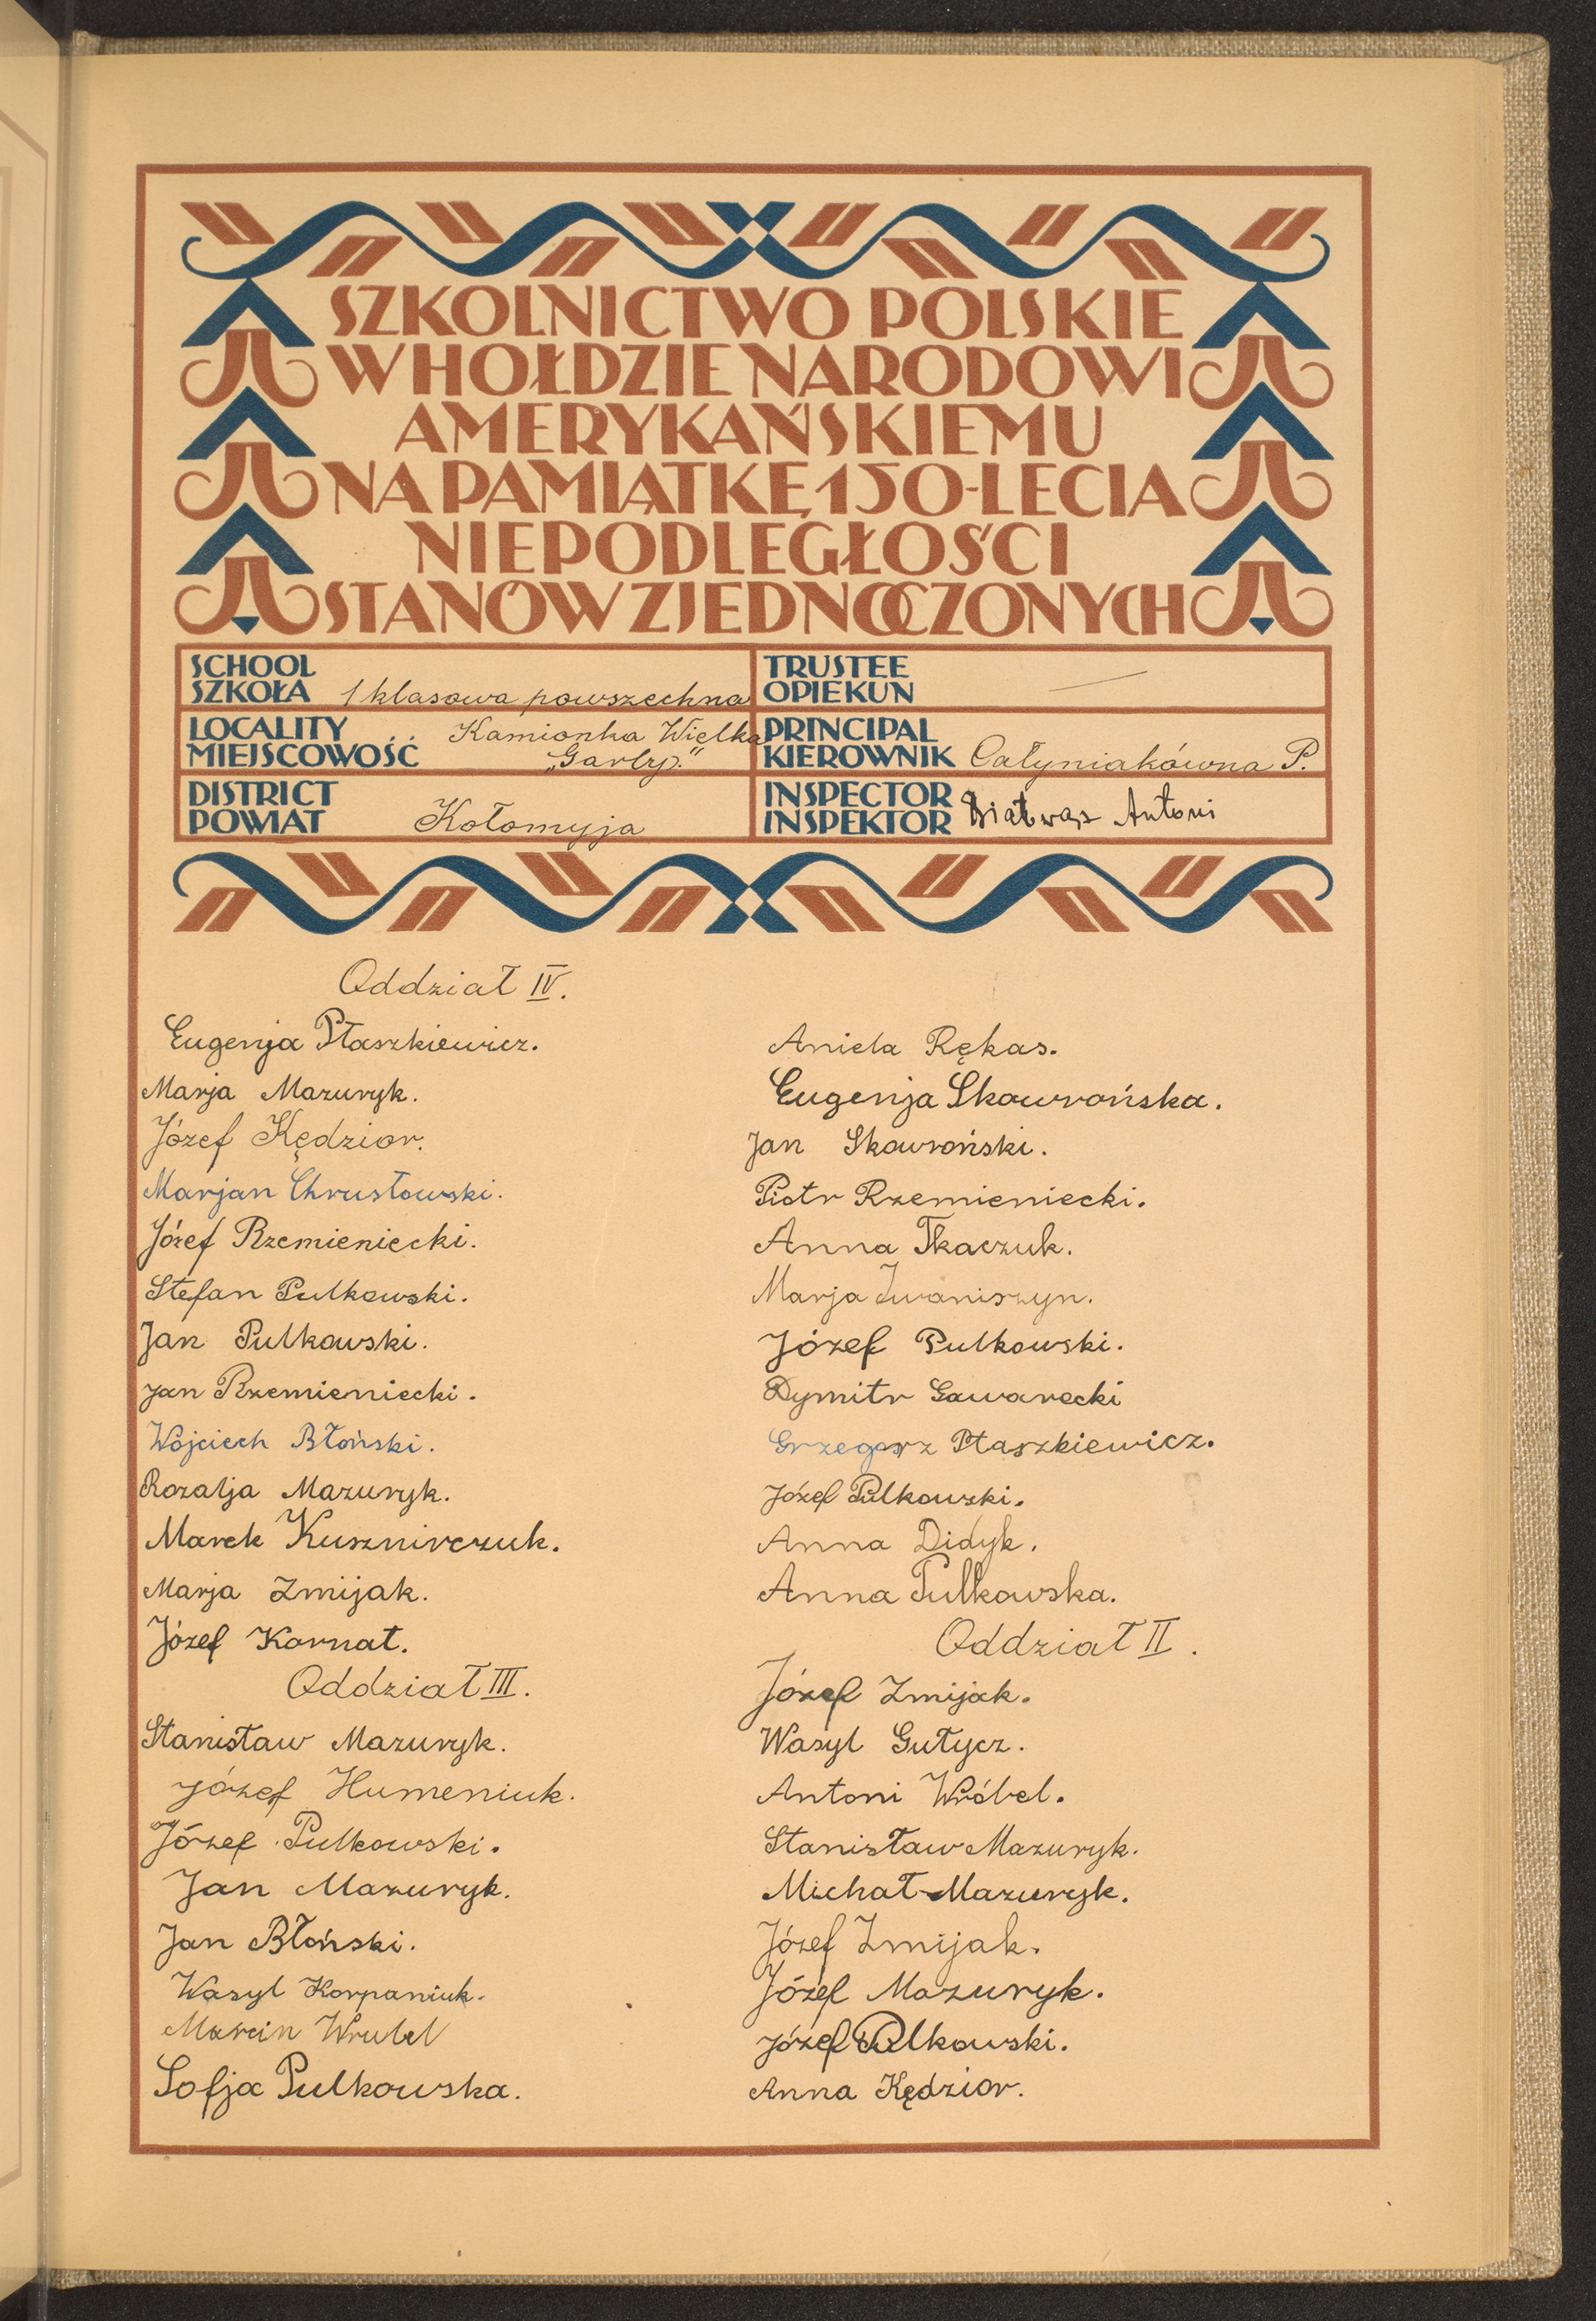 SZKOLNICTWO POLSKIE
W HOŁDZIE NARODOWI
AMERYKAŃSKIEMU
NA PAMIĄTKĘ 150-LECIA
NIEPODLEGŁOŚCI
STANÓW ZJEDNOCZONYCH
SCHOOL
SZKOŁA 1 klasowa powszechna
TRUSTEE
OPIEKUN —
LOCALITY
MIEJSCOWOŚĆ Kamionka Wielka
PRINCIPAL
KIEROWNIK Całyniakówna P.
DISTRICT
POWIAT Kołomyja
INSPECTOR
INSPEKTOR Białwąs Antoni
Oddział IV.
Eugenja Ptaszkiewicz.
Marja Mazuryk.
Józef Kędzior.
Marjan Chrustowski.
Józef Rzemieniecki.
Stefan Pulkowski.
Jan Pulkowski.
Jan Rzemieniecki.
Wojciech Błoński.
Rozalja Mazuryk.
Marek Kusznirczuk.
Marja Zmijak.
Józef Kornat.
Oddział III.
Stanisław Mazuryk.
Józef Humeniuk.
Józef Pulkowski.
Jan Mazuryk.
Jan Błoński.
Wasyl Korpaniuk.
Marcin Wrubel
Zofja Pulkowska.
Aniela Rękas.
Eugenja Skowrońska.
Jan Skowroński.
Piotr Rzemieniecki.
Anna Tkaczuk.
Marja Iwaniszyn.
Józef Pulkowski.
Dymitr Gawarecki
Grzegorz Ptaszkiewicz.
Józef Pulkowski.
Anna Didyk.
Anna Pulkowska.
Oddział II.
Józef Zmijak.
Wasyl Gutycz.
Antoni Wróbel.
Stanisław Mazuryk.
Michał Mazuryk.
Józef Zmijak.
Józef Mazuryk.
Józef Pulkowski.
Anna Kędzior.